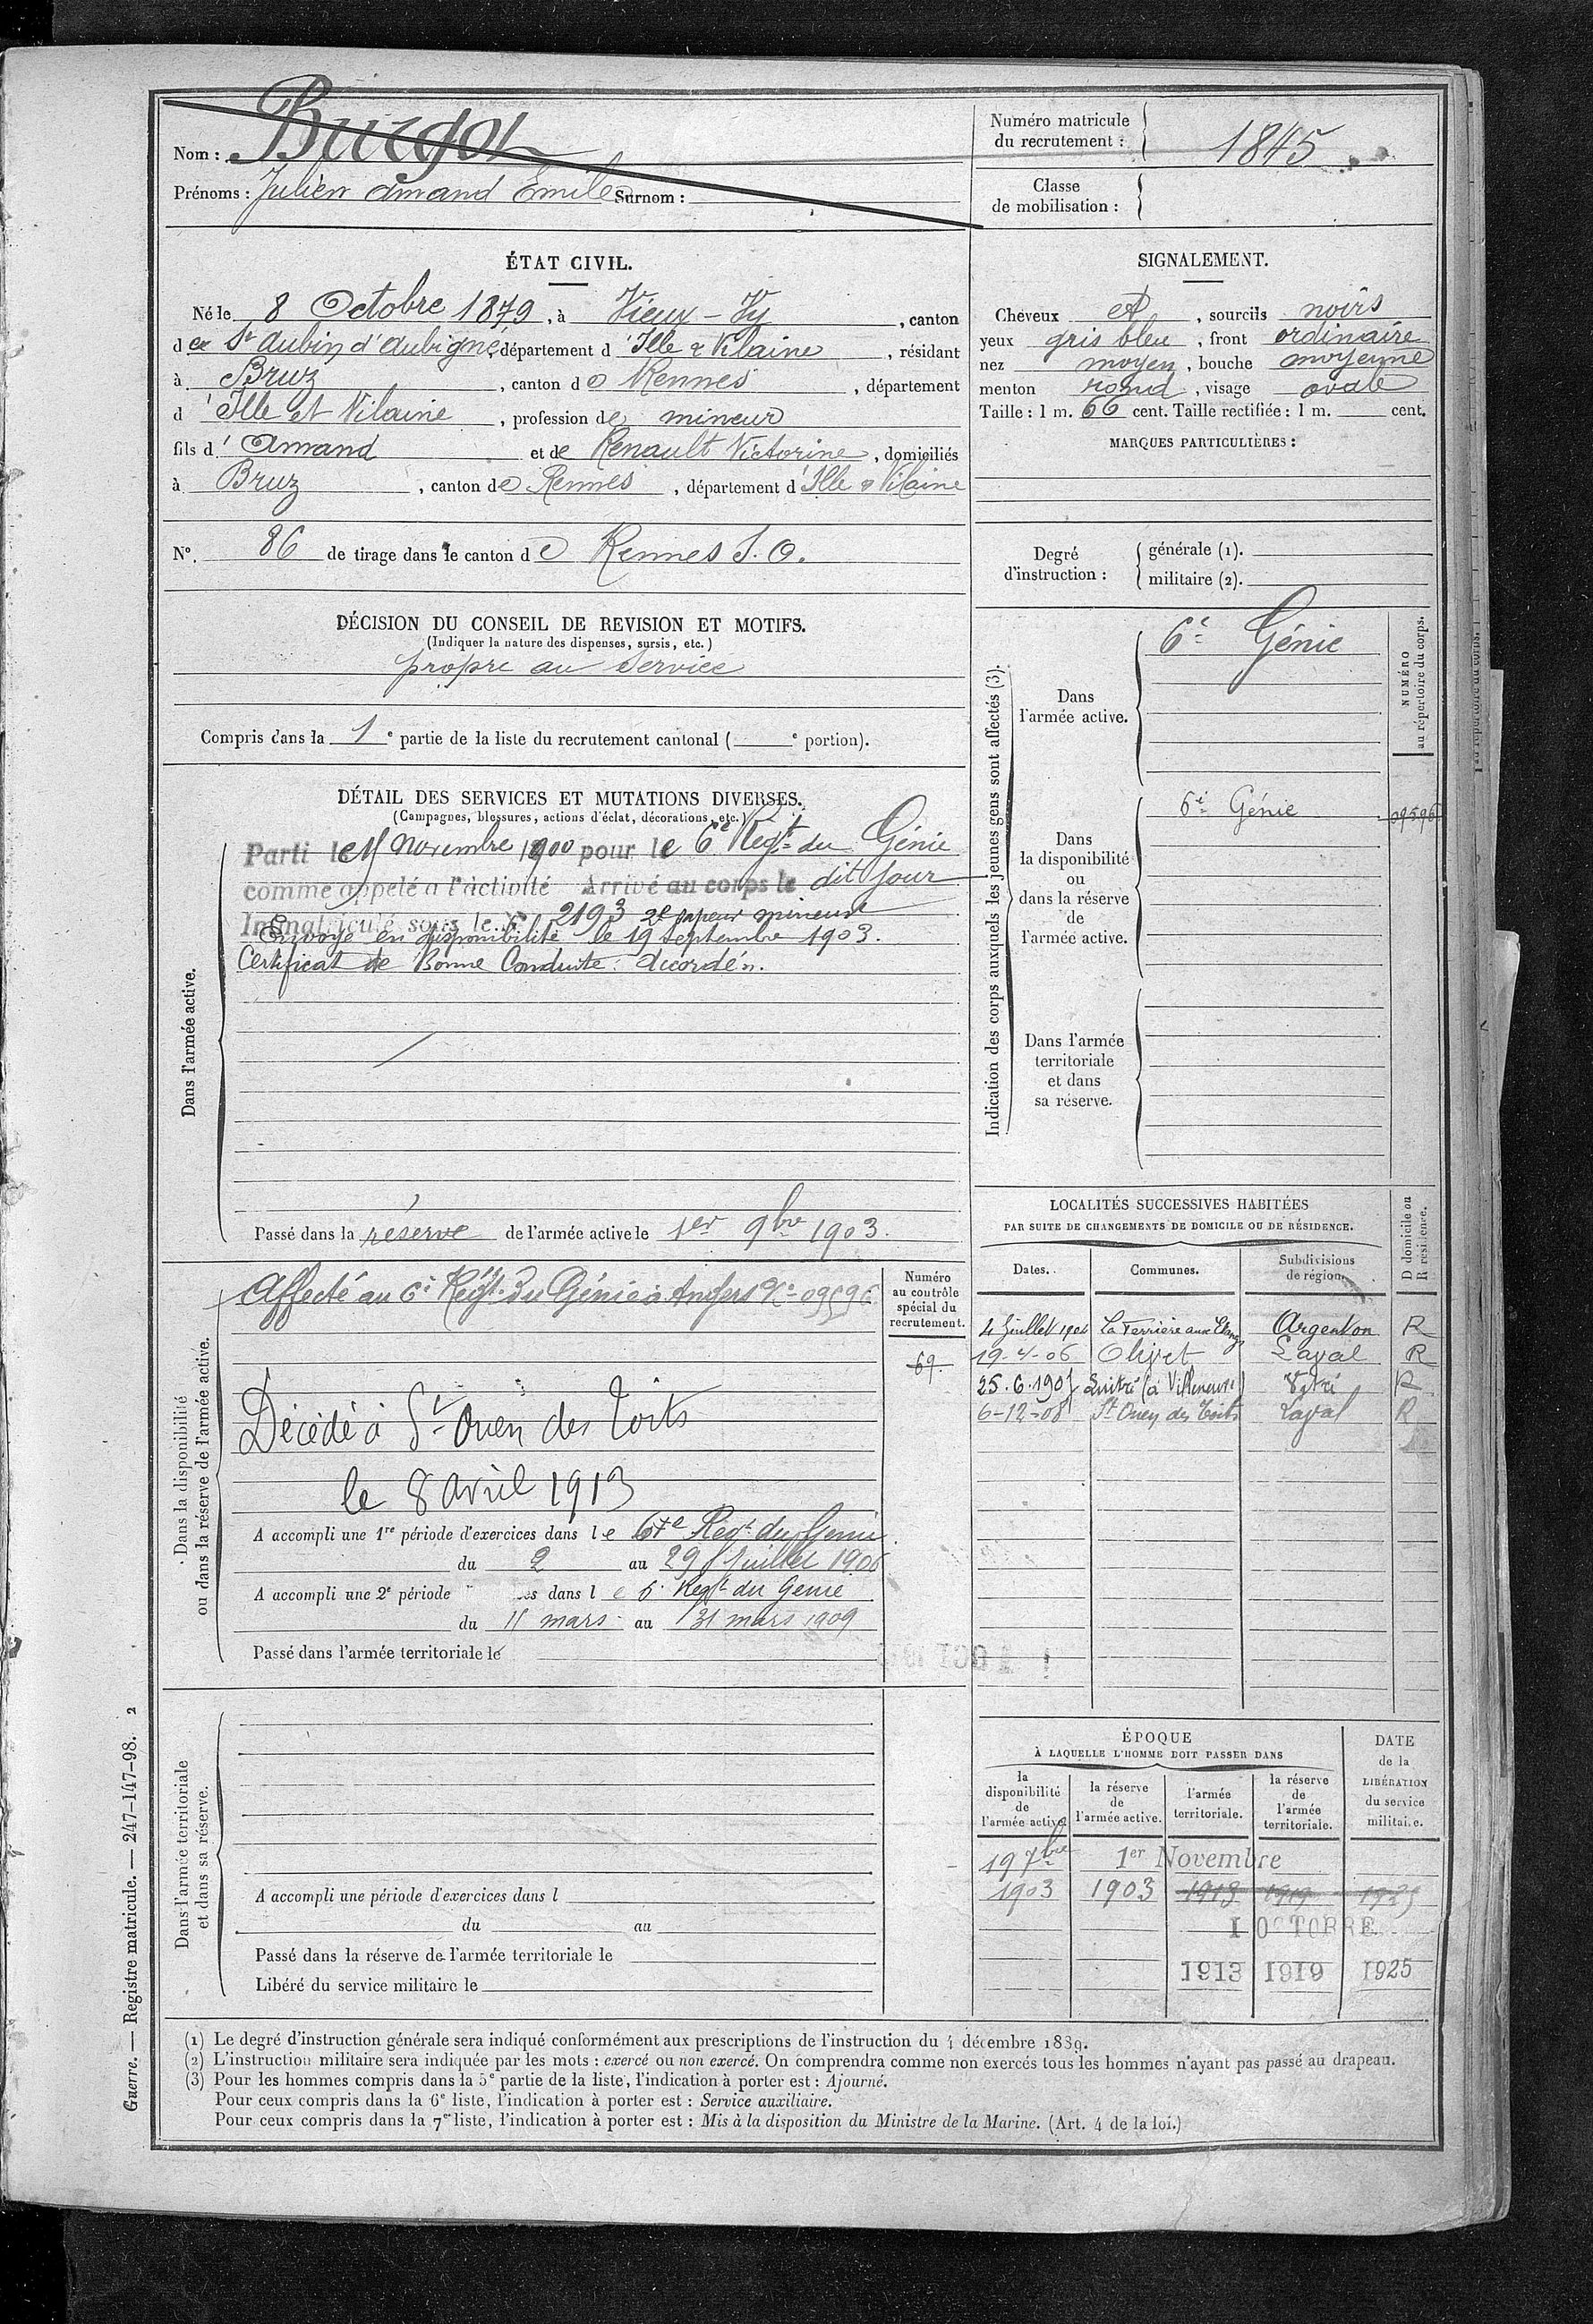 Nom : Burgot
Prénoms : Julien Amand Emile Surnom :
Numéro matricule
du recrutement :
1845
Classe
de mobilisation :
ÉTAT CIVIL.
Né le 8 Octobre 1879, à Vieux-Vy, canton
de St Aubin d'Aubigné, département d'Ille & Vilaine, résidant
à Bruz, canton de Rennes, département
d'Ille et Vilaine, profession de mineur
fils d'Amand et de Renault Victorine, domiciliés
à Bruz, canton de Rennes, département d'Ille & Vilaine
N°. 86 de tirage dans le canton de Rennes S.O.
DÉCISION DU CONSEIL DE REVISION ET MOTIFS.
(Indiquer la nature des dispenses, sursis, etc.)
propre au service
Compris dans la 1e partie de la liste du recrutement cantonal ( e portion).
SIGNALEMENT.
Cheveux et, sourcils noirs
yeux gris bleu, front ordinaire
nez moyen, bouche moyenne
menton rond, visage ovale
Taille : 1 m. 66 cent. Taille rectifiée : 1 m. cent.
MARQUES PARTICULIÈRES :
Degré
d'instruction :
générale (1).
militaire (2).
Indication des corps auxquels les jeunes gens sont affectés (3).
Dans
l'armée active.
6e Génie
NUMÉRO
au répertoire du corps.
Dans
la disponibilité
ou
dans la réserve
de
l'armée active.
6e Génie
09596
Dans l'armée
territoriale
et dans
sa réserve.
DÉTAIL DES SERVICES ET MUTATIONS DIVERSES.
(Campagnes, blessures, actions d'éclat, décorations, etc.)
Dans l'armée active.
Parti le novembre 1900 pour le 6e Regt du Génie
comme appelé à l'activité Arrivé au corps le dit jour
Immatriculé sous le n° 2193 2e sapeur mineur
Envoyé en disponibilité le 19 septembre 1903.
Certificat de Bonne Conduite : Accordé.
Passé dans la réserve de l'armée active le 1er 9bre 1903.
Dans la disponibilité
ou dans la réserve de l'armée active.
Affecté au 6e Régt du Génie à Angers N° 09596
Numéro
au contrôle
spécial du
recrutement.
69
Décédé à St Ouen des Toits
le 8 avril 1913
A accompli une 1re période d'exercices dans le 6e Regt du Génie
du 2 au 29 Juillet 1906
A accompli une 2e période dans le 6e Regt du Génie
du 11 mars au 31 mars 1909
Passé dans l'armée territoriale le
LOCALITÉS SUCCESSIVES HABITÉES
PAR SUITE DE CHANGEMENTS DE DOMICILE OU DE RÉSIDENCE.
Dates. Communes. Subdivisions
de région.
D domicile ou
R résidence.
4 Juillet 1904 La Ferrière aux Etangs Argentan R
19-4-06 Olivet Laval R
25.6.1907 Luitré (à Villeneuve) Vitré R
6-12-08 St Ouen des Toits Laval R
Dans l'armée territoriale
et dans sa réserve.
A accompli une période d'exercices dans l
du au
Passé dans la réserve de l'armée territoriale le
Libéré du service militaire le
ÉPOQUE
À LAQUELLE L'HOMME DOIT PASSER DANS
la
disponibilité
de
l'armée active.
la réserve
de
l'armée active.
l'armée
territoriale.
la réserve
de
l'armée
territoriale.
DATE
de la
LIBÉRATION
du service
militaire.
19 7bre 1er Novembre
1903 1903 1913 1919
1 OCTOBRE
1913 1919 1925
(1) Le degré d'instruction générale sera indiqué conformément aux prescriptions de l'instruction du 4 décembre 1889.
(2) L'instruction militaire sera indiquée par les mots : exercé ou non exercé. On comprendra comme non exercés tous les hommes n'ayant pas passé au drapeau.
(3) Pour les hommes compris dans la 5e partie de la liste, l'indication à porter est : Ajourné.
Pour ceux compris dans la 6e liste, l'indication à porter est : Service auxiliaire.
Pour ceux compris dans la 7e liste, l'indication à porter est : Mis à la disposition du Ministre de la Marine. (Art. 4 de la loi.)
Guerre. — Registre matricule. — 247-147-98. 2